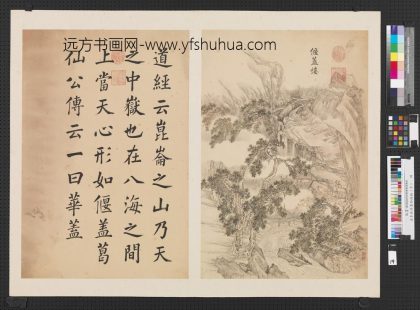 远方书画网-www.yfshuhua.com
道經云崑崙之山乃天
之中嶽也在八海之間
上當天心形如偃盖葛
仙公傳云一曰華盖
偃盖樓